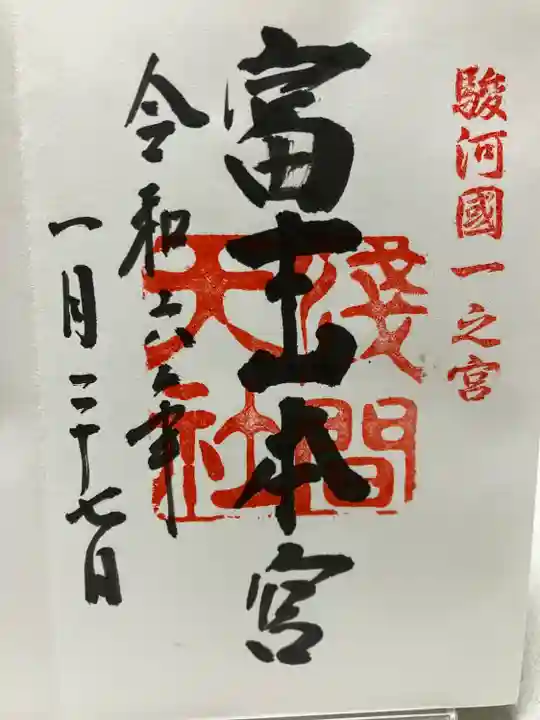 駿河國一之宮
富士山本宮
淺間
大社
令和六年
一月二十七日